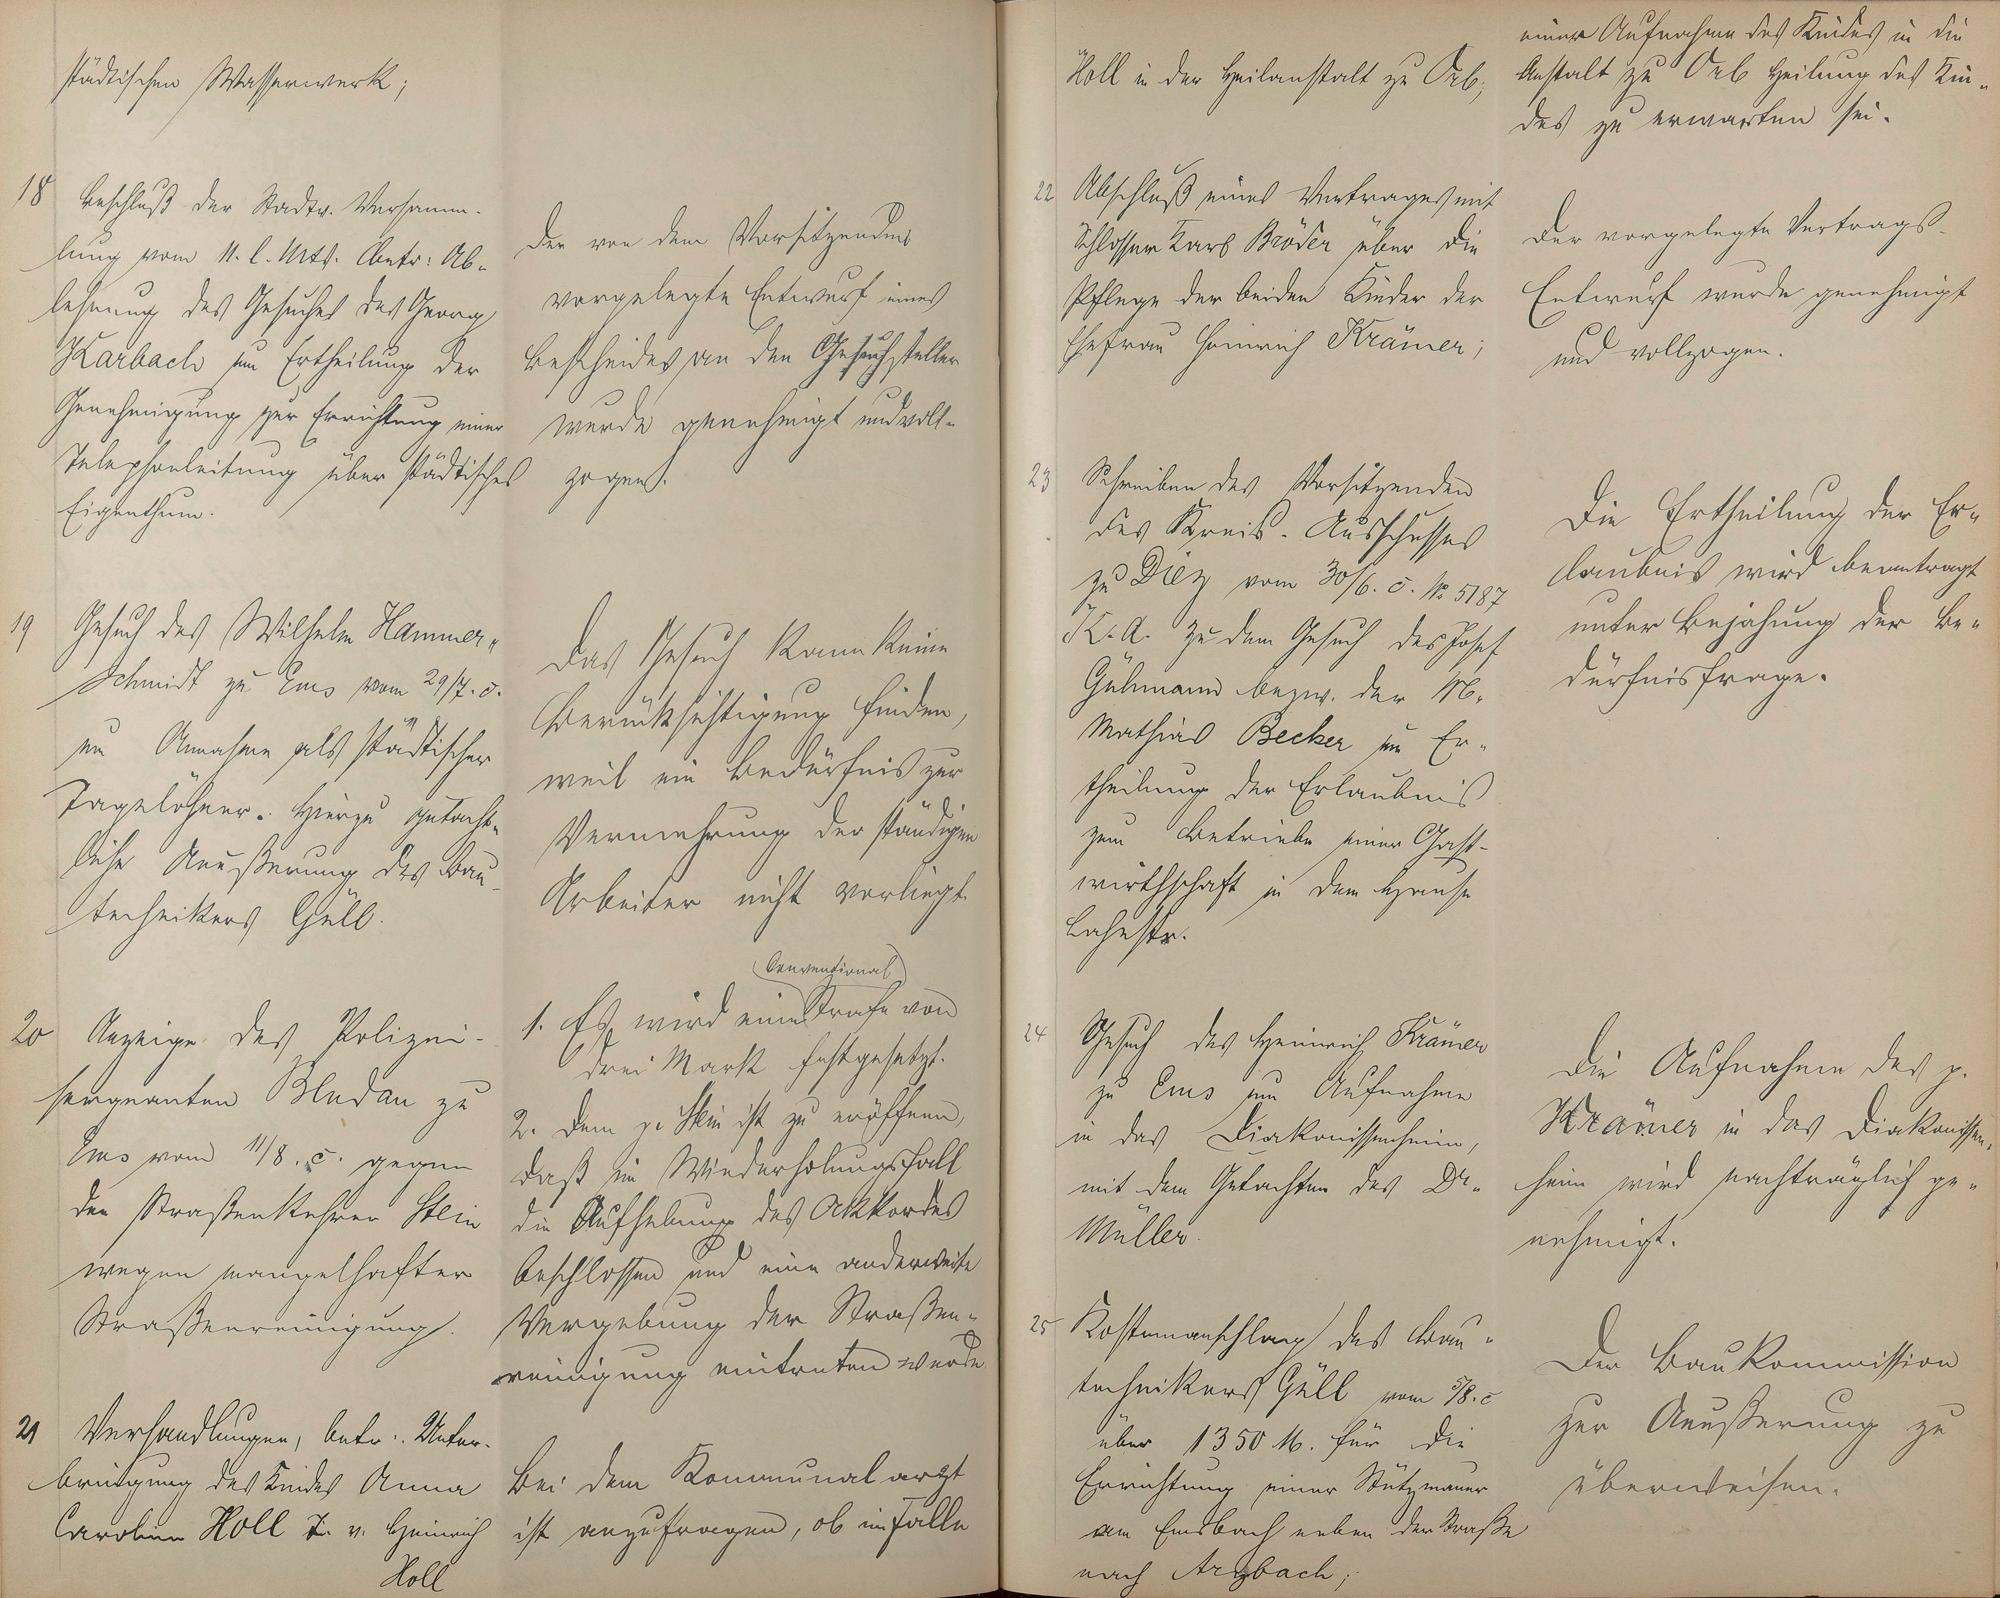 städtischen Wasserwerk;
18 Beschluß der Stadtv. Versamm-
lung vom 11. l. Mts. betr: Ab-
lehnung des Gesuches des Georg
Karbach um Ertheilung der
Genehmigung zur Errichtung einer
Telephonleitung über städtisches
Eigenthum.
Der von dem Vorsitzenden
vorgelegte Entwurf eines
Bescheides an den Gesuchsteller
wurde genehmigt und voll-
zogen.
19 Gesuch des Wilhelm Hammer-
schmidt zu Ems vom 29/7. c.
um Annahme als städtischer
Tagelöhner. Hierzu gutacht-
liche Aeußerung des Bau-
technikers Güll.
Das Gesuch kann keine
Berücksichtigung finden,
weil ein Bedürfnis zur
Vermehrung der ständigen
Arbeiter nicht vorliegt.
20 Anzeige des Polizei-
sergeanten Bludau zu
Ems vom 11/8. c. gegen
den Straßenkehrer Stein
wegen mangelhafter
Straßenreinigung.
Conventional
1. Es wird eine Strafe von
drei Mark festgesetzt.
2. Dem p. Stein ist zu eröffnen,
daß im Wiederholungsfall
die Aufhebung des Akkordes
beschlossen und eine anderweite
Vergebung der Straßen-
reinigung eintreten werde
21 Verhandlungen, betr. Unter-
bringung des Kindes Anna
Caroline Holl T. v. Heinrich
Holl
Bei dem Kommunalarzt
ist anzufragen, ob im Falle
Holl in der Heilanstalt zu Orb;
einer Aufnahme des Kindes in die
Anstalt zu Orb Heilung des Kin-
des zu erwarten sei.
22 Abschluß eines Vertrages mit
Schlosser Karl Bröder über die
Pflege der beiden Kinder der
Ehefrau Heinrich Krämer;
Der vorgelegte Vertrags-
Entwurf wurde genehmigt
und vollzogen.
23 Schreiben des Vorsitzenden
des Kreis-Ausschusses
zu Diez vom 30/6. c. No 5187
K. A. zu dem Gesuch des Josef
Gühmann bezw. der M.
Mathias Becker um Er-
theilung der Erlaubnis
zum Betriebe einer Gast-
wirthschaft in dem Hause
Lahnstr.
Die Ertheilung der Er-
laubnis wird beantragt
unter Bejahung der Be-
dürfnisfrage.
24 Gesuch des Heinrich Krämer
zu Ems um Aufnahme
in das Diakonissenheim,
mit dem Gutachten des Dr.
Müller.
Die Aufnahme des p.
Krämer in das Diakonissen-
heim wird nachträglich ge-
nehmigt.
25 Kostenanschlag des Bau-
technikers Güll vom 5/8. c
über 1350 M. für die
Errichtung einer Stützmauer
am Emsbach neben der Straße
nach Arzbach;
Der Baukommission
zur Aeußerung zu
überweisen.